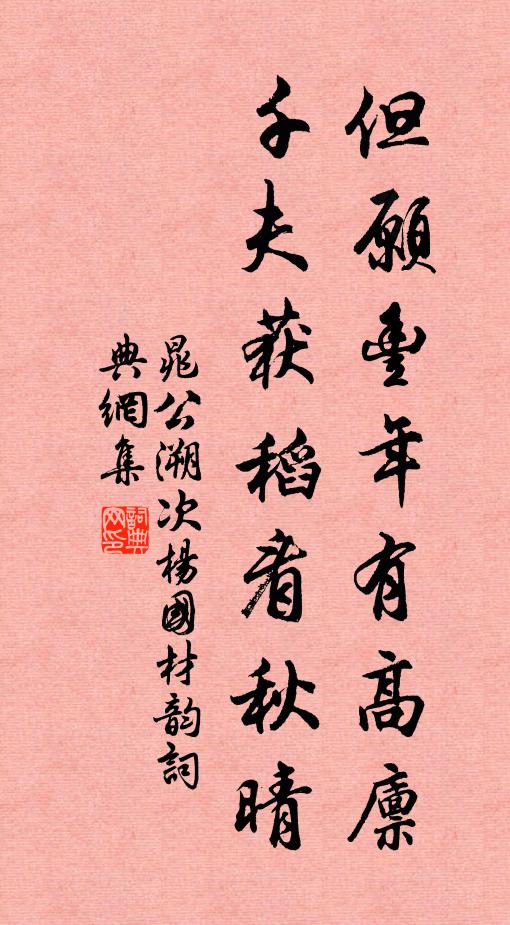 但願豐年有高廩
千夫获稻看秋晴
晁公溯次楊國材韵詞
典網集
詞典網印